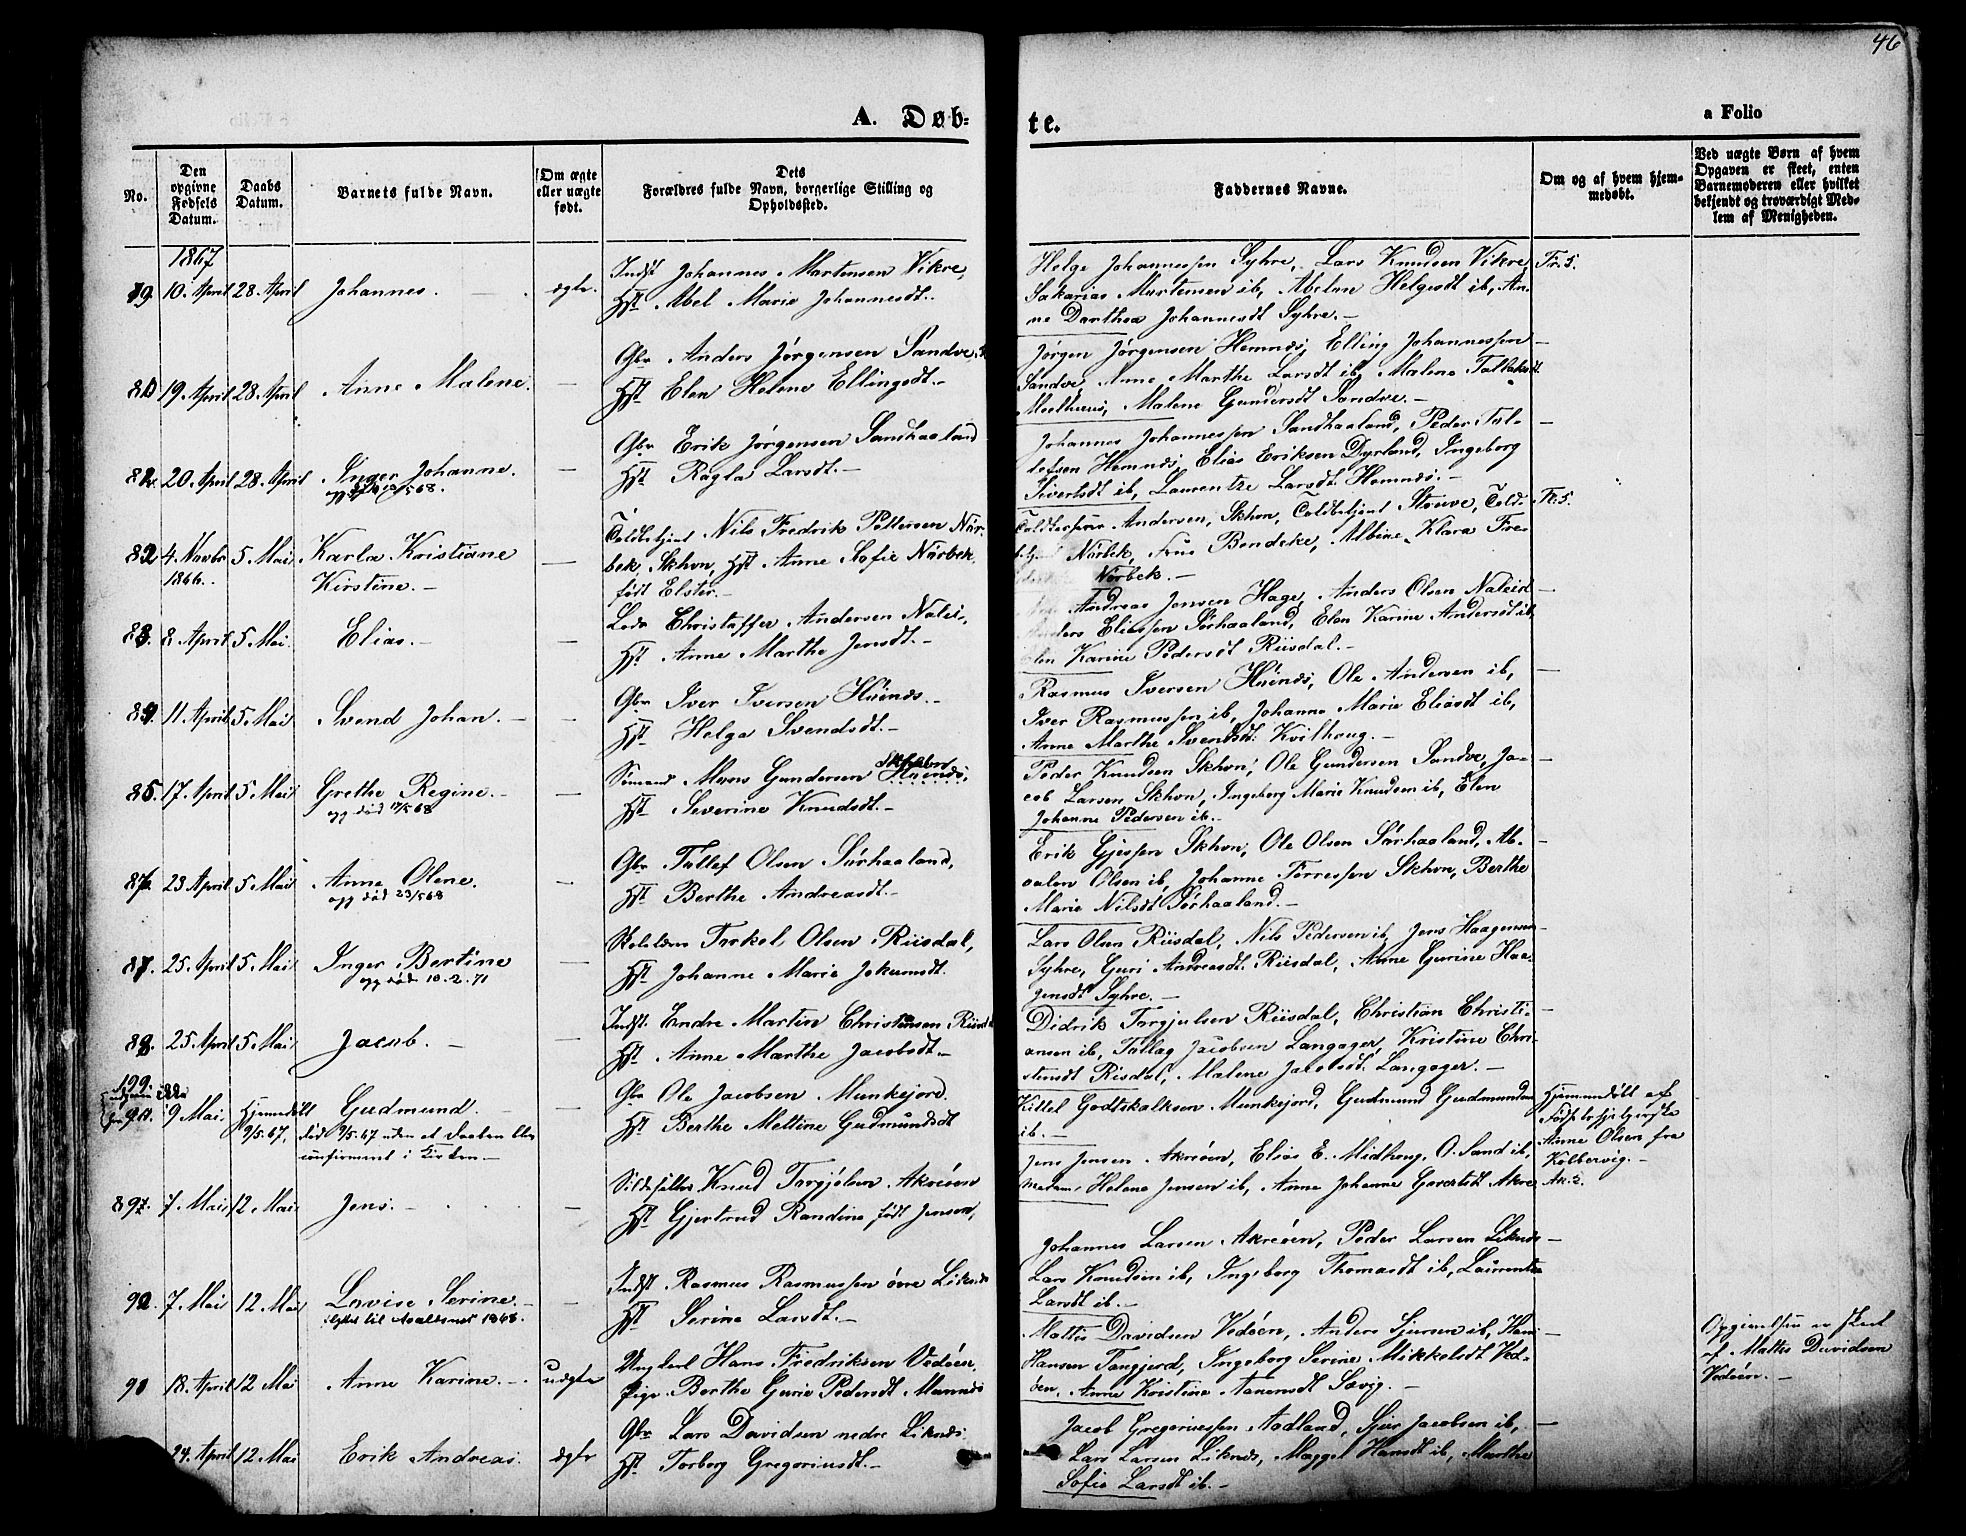 46
A. Døb-
te.
a Folio
No.
Den opgivne Fødsels Datum.
Daabs Datum.
Barnets fulde Navn.
Om ægte eller uægte født.
Dets Forældres fulde Navn, borgerlige Stilling og Opholdssted.
Faddernes Navne.
Om og af hvem hjem-
medøbt.
Ved uægte Børn af hvem
Opgaven er skeet, enten
Barnemoderen eller hvilket
bekjendt og troværdigt Med-
lem af Menigheden.
1867
79. 10. April 28. April Johannes. ægte.
Indst Johannes Martensen Vikre,
Hst. Abel Marie Johannesdt.
Helge Johannessen Syhre, Lars Knudsen Vikre Fr. 5.
Sakarias Martensen ib, Abelon Helgesdt ib, An-
ne Dorthea Johannesdt Syhre.-
80 19. April 28. April Anne Malene. —
Gbr Anders Jørgensen Sandve,
Hst. Elen Helene Ellingsdt.-
Jørgen Jørgensen Hemnes, Elling Johannessen —
Sandve, Anne Marthe Larsdt ib, Malene
Malene Gundersdt Sandve.-
20. April 28. April Inger Johanne. —
Gbr Erik Jørgensen Sandhaaland
Hst. Ragla Larsdt.-
Johannes Johannessen Sandhaaland, Peder Tol- —
lefsen Hemnes, Elias Eriksen Dyrland, Ingeborg
Sivertsdt ib, Laurentze Larsdt. Hemnes.-
82 4. Novbr 5 Mai Karla Kristiane
1866. Kirstine.- —
Toldbetjent Nils Fredrik Pettersen Nør-
bek, Skhvn, Hst Anne Sofie Nørbek,
født Elster.-
Andersen, Skhvn, Toldbetjent Struve, Told- Fr. 5.
Nørbek, Frue Bendeke, Albine Klara Fre-
Nørbek.-
83. 8. April 5 Mai. Elias.- —
Lods Christoffer Andersen
Hst. Anne Marthe Jensdt.-
Andreas Jensen Hage, Anders Olsen —
Anders Eliassen Sørhaaland, Elen Karine Andersdt ib,
Elen Karine Pedersdt Riisdal.-
84. 11. April 5 Mai Svend Johan.- —
Gbr Iver Iversen Huines.-
Hst. Helga Svendsdt.-
Rasmus Iversen Huines, Ole Andersen ib, —
Iver Rasmussen ib, Johanne Marie Eliasdt ib,
Anne Marthe Svendsdt. Kvilhaug.-
85. 17. April 5 Mai Grethe Regine.- —
opg død 17/5 68
Sømand Mons Gundersen Huines,
Hst. Severine Knudsdt.-
Peder Knudsen Skhvn, Ole Gundersen Sandve, Ja- —
cob Larsen Skhvn, Ingeborg Marie Knudsen ib, Elen
Johanne Pedersen ib.-
23 April 5 Mai Anne Olene. —
opg død 23/5 68
Gbr Tollef Olsen Sørhaaland,
Hst. Berthe Andreasdt.-
Erik Gjessen Skhvn, Ole Olsen Sørhaaland, Ab- —
salon Olsen ib, Johanne Torressen Skhvn, Berthe
Marie Nilsdt Sørhaaland.-
87. 25. April 5 Mai Inger Bertine —
opg død 10.2.71
Skolelærer Torkel Olsen Riisdal,
Hst. Johanne Marie
Lars Olsen Riisdal, Nils Pedersen ib, Jens Haagensen —
Syhre, Guri Andreasdt. Riisdal, Anne Gurine Haa-
gensdt Syhre.-
88. 25. April 5 Mai Jacob.- —
Indst. Endre Martin Christensen
Hst. Anne Marthe Jacobsdt.-
Didrik Torgjulsen Riisdal, Christian Christi- —
ansen ib, Tollag Jacobsen Langager, Kristine Chri-
stensdt Risdal, Malene Jacobsdt. Langager.-
199.
9 Mai Hjemmedøbt Gudmund.- —
9/5.67, død 9/5.67 uden at Daaben blev
confirmeret i Kirken-
Gbr Ole Jacobsen Munkejord,
Hst Berthe Meltine Gudmundsdt
Kittel Godtskalksen Munkejord, Gudmund Gudmundsen
ib.-
Hjemmedøbt af
Anne Olsen fra
Kolbervig.-
89. 7. Mai 12. Mai Jens.- —
Knud Torgjølsen Akreøen
Hst Gjertrud Randine født Jensen,
Jens Jensen Akreøen, Elias E. Midhoug, O. Sand ib,
Madam Helene Jensen ib, Anne Johanne Govertsdt Akre
Ak. 2.
90. 7. Mai 12. Mai Lovise Serine.- —
flyttet til Avaldsnes 1868.
Indst Rasmus Rasmussen øvre Liknes
Hst Serine Larsdt.-
Johannes Larsen Akreøen, Peder Larsen Liknes —
Lars Knudsen ib, Ingeborg Thomasdt ib, Laurentze
Larsdt ib.-
18. April 12 Mai Anne Karine.- uægte
Ungkarl Hans Fredriksen Vedøen,
Pige Berthe Gurie Pedersdt Mannes
Mattis Davidsen Vedøen, Anders Sjursen ib, Hans —
Hansen Tangjerd, Ingeborg Serine Mikkelsdt Ved-
øen, Anne Kristine Aanensdt Sævig.-
Opgivelsen er skeet
af Mattis Davidsen
Vedøen.-
24. April 12 Mai Erik Andreas. ægte
Gbr Lars Davidsen nedre Liknes
Hst. Torborg Gregoriusdt.-
Jacob Gregoriussen Aadland, Sjur Jacobsen ib, —
Lars Larsen Liknes, Maggel Hansdt ib, Marthe
Sofie Larsdt ib.-